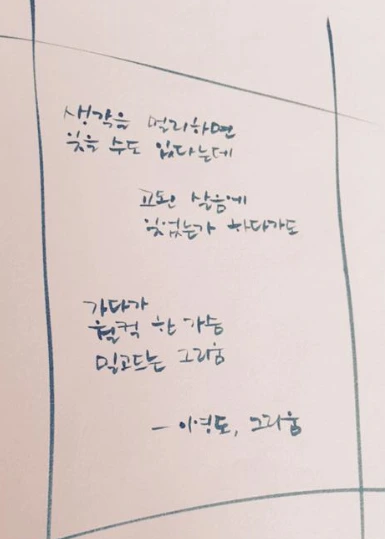 생각을 멀리하면
잊을 수도 있다는데
고된 삶음에
잊었는가 하다가도
가다가
월컥 한 가슴
밀고드는 그리움
- 이영도, 그리움